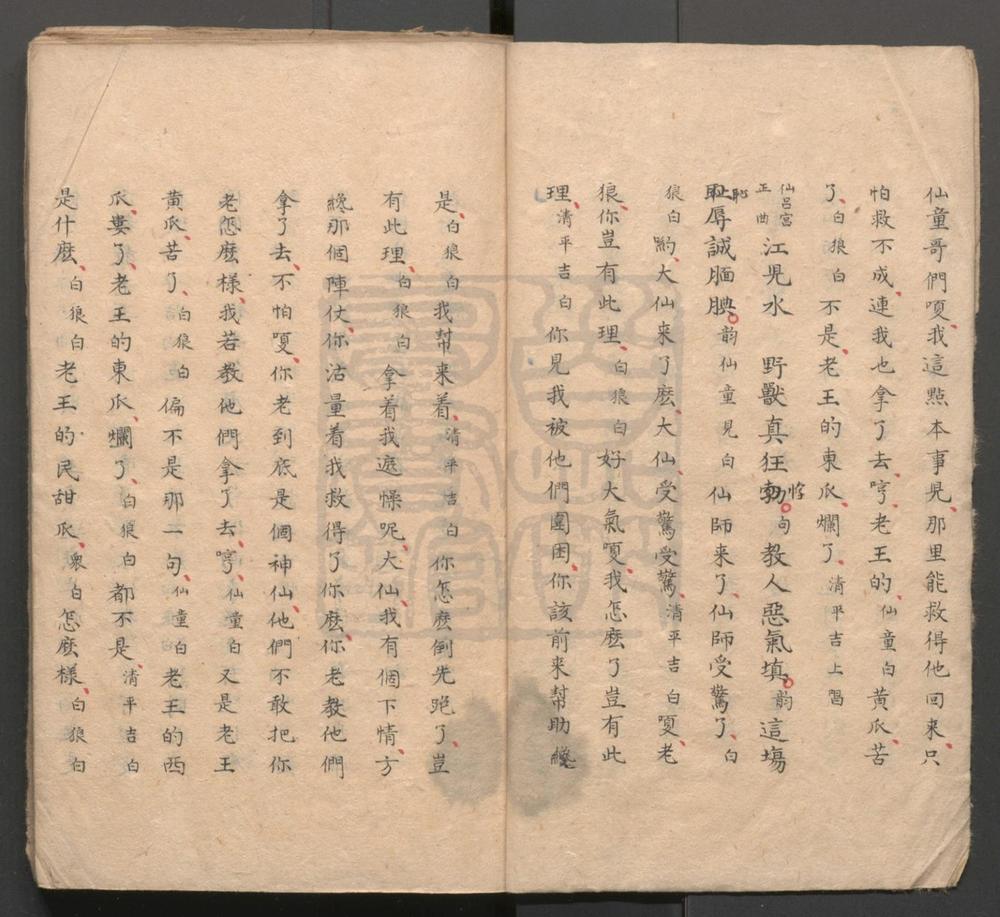 仙童哥們嗄、我這點本事見、那里能救得他回来、只
怕救不成、連我也拿了去、哼、老王的、仙童白黄瓜、苦
了、白狼白不是、老王的東瓜、爛了、清平吉上唱
仙呂宮正曲江見水 野獸真狂勃悖句教人惡氣填韵這塲
耻恥辱誠腼腆韵仙童見白仙師来了、仙師受驚了、白
狼白喲、大仙来了麽、大仙、受驚受驚、清平吉白嗄、老
狼你豈有此理、白狼白好大氣嗄、我怎麽了豈有此
理、清平吉白你見我被他們圍困、你該前来帮助纔
是、白狼白我幫来着、清平吉白你怎麽倒先跑了、豈
有此理、白狼白拿着我遮懆呢、大仙、我有個下情、方
纔那個陣仗、你沽量着我救得了你麽、你老教他們
拿了去、不怕嗄、你老到底是個神仙、他們不敢把你
老怎麽樣、我若教他們拿了去、哼、仙童白又是老王
黄瓜、苦了、白狼白偏不是那一句、仙童白老王的西
瓜、婁了、老王的東瓜、爛了、白狼白都不是、清平吉白
是什麽、白狼白老王的民甜瓜、衆白怎麽樣、白狼白